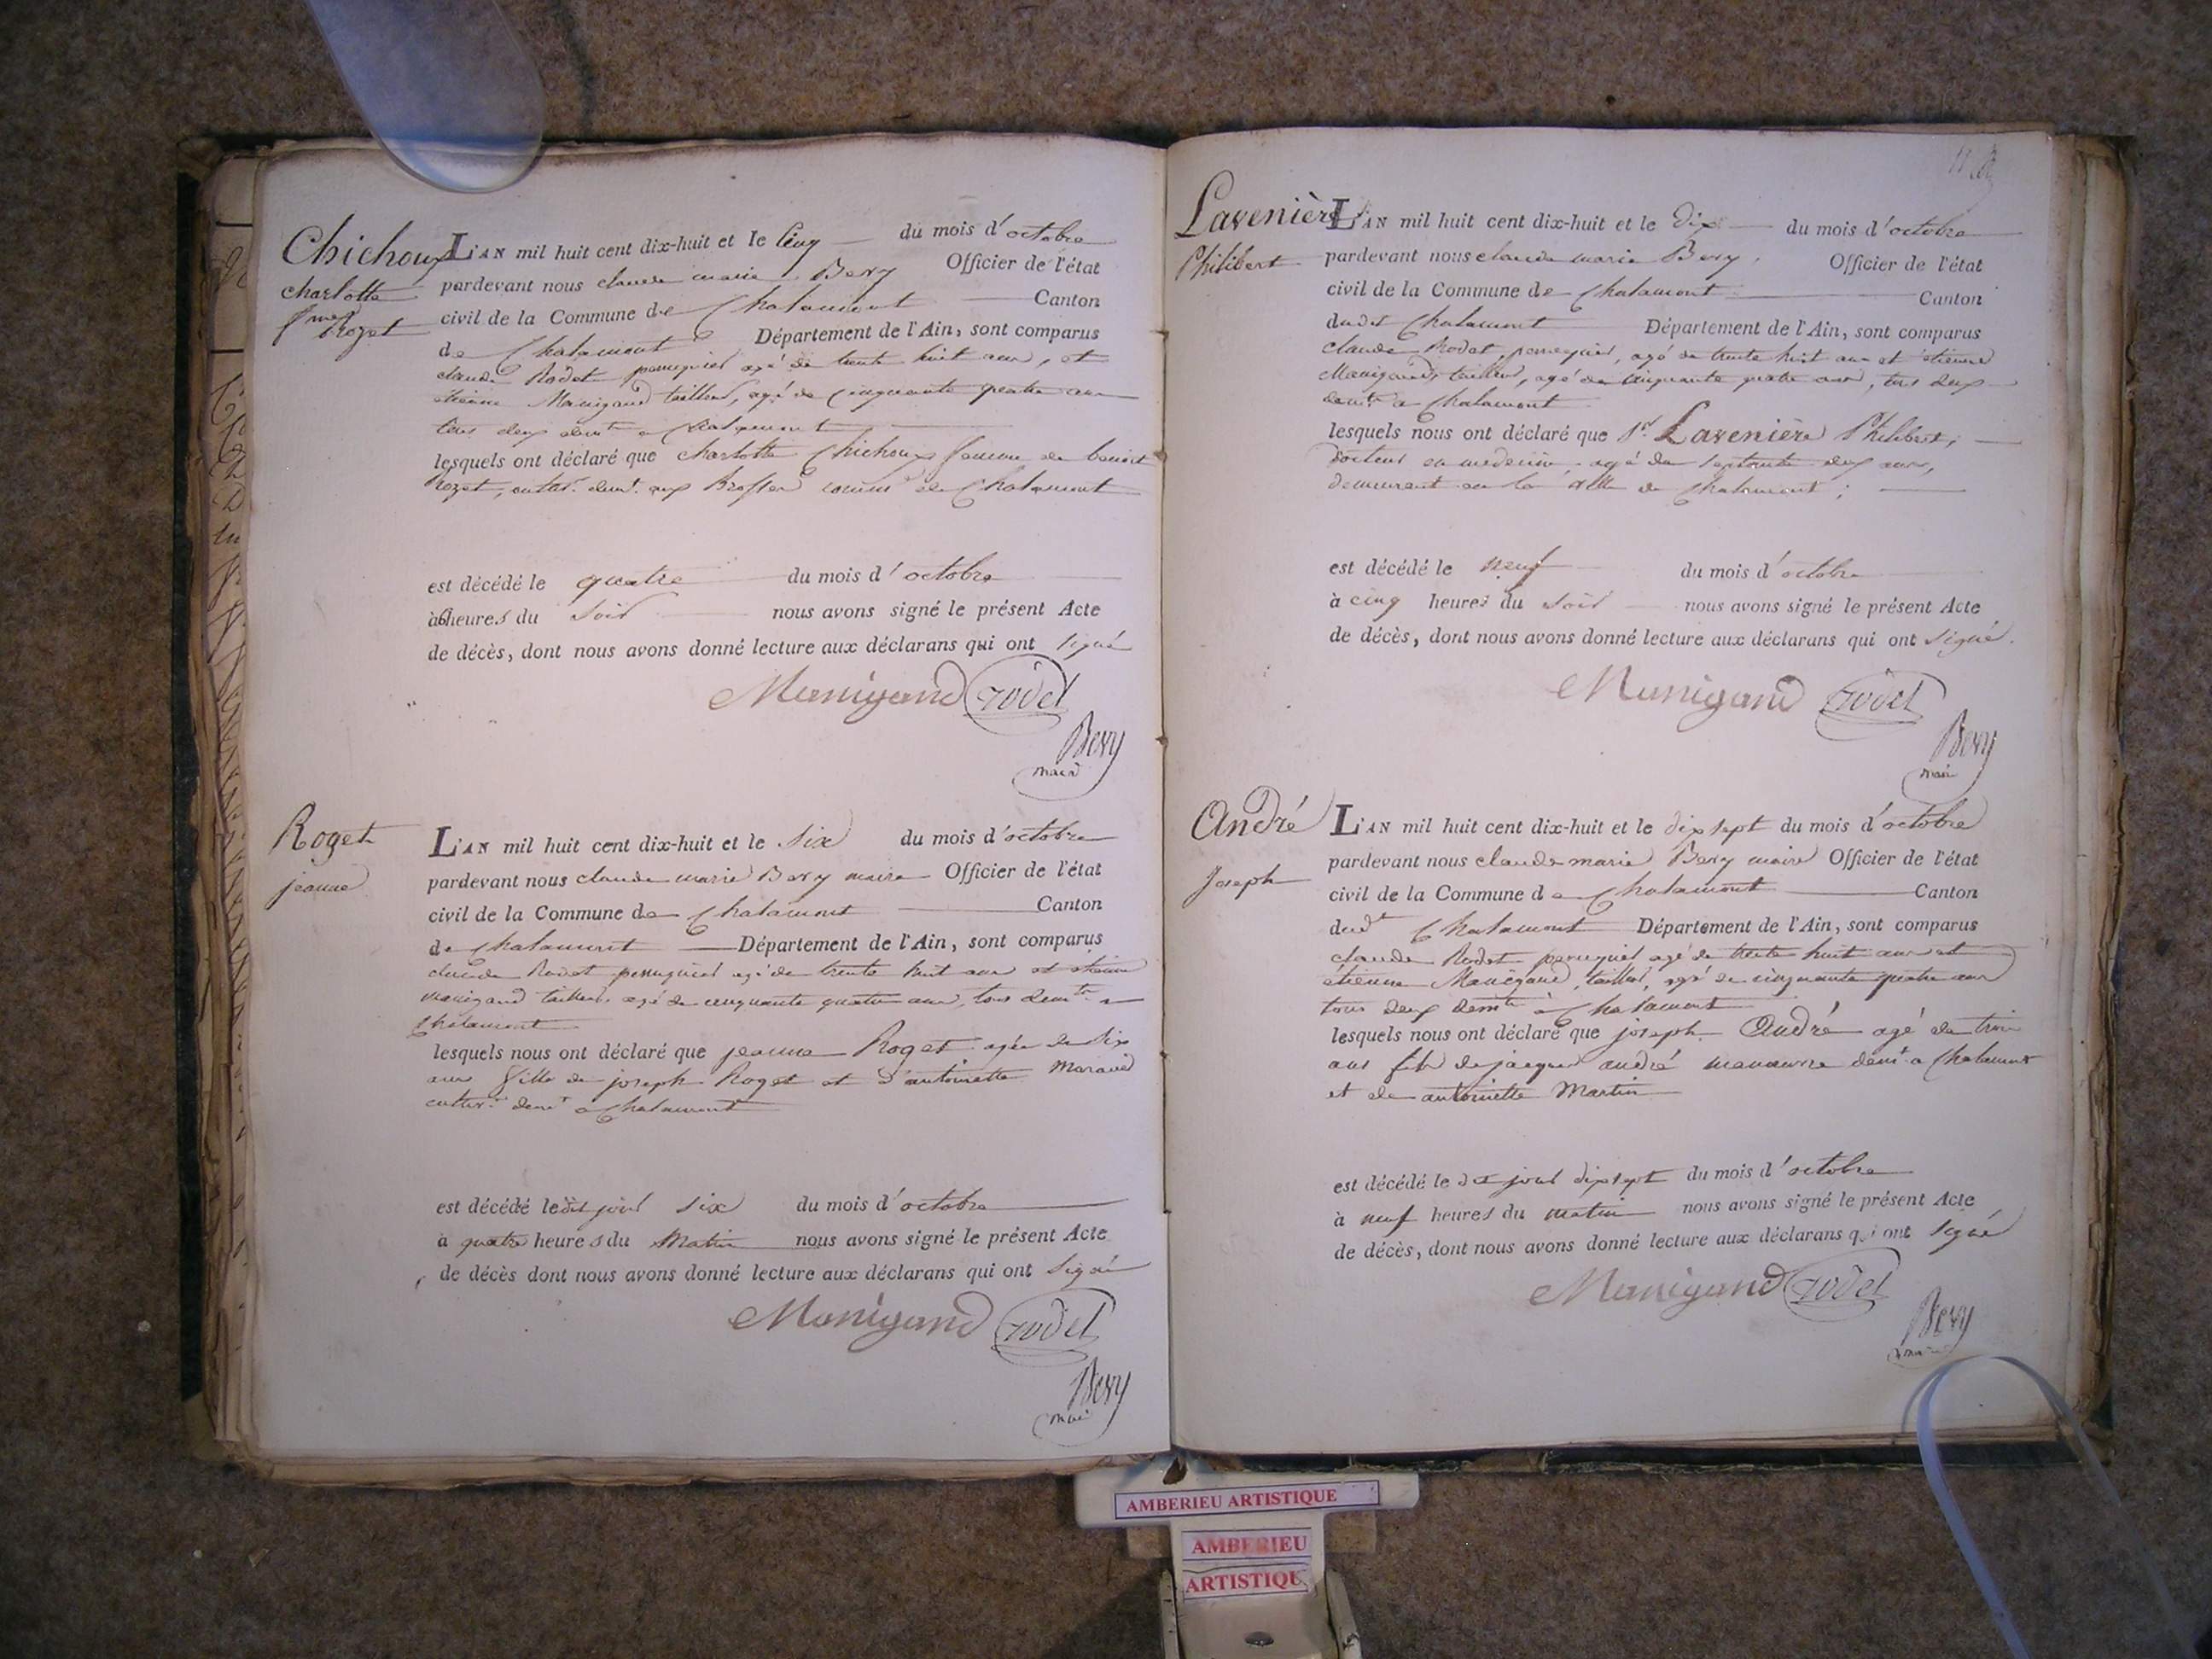 Chichoux
Charlotte
f.me Rozet
L'AN mil huit cent dix-huit et le cinq du mois d'octobre
pardevant nous claude marie Bevy Officier de l'état
civil de la Commune de Chalamont Canton
de Chalamont Département de l'Ain, sont comparus
claude Rodet perruquier agé de trente huit ans, et
étienne Manigand tailleur, agé de cinquante quatre ans
tous deux demt. a Chalamont
lesquels ont déclaré que charlotte Chichoux femme de benoit
Rozet, cultivr. demt. aux Brosses de Chalamont
est décédé le quatre du mois d'octobre
à 6 heures du soir nous avons signé le présent Acte
de décès, dont nous avons donné lecture aux déclarans qui ont signé
Manigand rodet
Bevy
maire
Roget
jeanne
L'AN mil huit cent dix-huit et le six du mois d'octobre
pardevant nous claude marie Bevy maire Officier de l'état
civil de la Commune de Chalamont Canton
de Chalamont Département de l'Ain, sont comparus
claude Rodet perruquier agé de trente huit ans et étienne
manigand tailleur agé de cinquante quatre ans, tous demts. a
Chalamont
lesquels nous ont déclaré que jeanne Roget agée de six
ans fille de joseph Roget et d'antoinette
cultivr. demt a Chalamont
est décédé ledit jour six du mois d'octobre
à quatre heures du Matin nous avons signé le présent Acte
de décès dont nous avons donné lecture aux déclarans qui ont signé
Manigand rodet
Bevy
maire
Lavenière
Philibert
L'AN mil huit cent dix-huit et le dix du mois d'octobre
pardevant nous claude marie Bevy, Officier de l'état
civil de la Commune de Chalamont Canton
dudit Chalamont Département de l'Ain, sont comparus
claude Rodet, perruquier, agé de trente huit ans et étienne
Manigand, tailleur, agé de cinquante quatre ans, tous deux
demts. a Chalamont
lesquels nous ont déclaré que Sr. Lavenière Philibert,
docteur en medecine agé de septante deux ans,
demeurant en la ville de Chalamont;
est décédé le neuf du mois d'octobre
à cinq heures du soir nous avons signé le présent Acte
de décès, dont nous avons donné lecture aux déclarans qui ont signé.
Manigand rodet
Bevy
maire
André
Joseph
L'AN mil huit cent dix-huit et le dix sept du mois d'octobre
pardevant nous claude marie Bevy maire Officier de l'état
civil de la Commune de Chalamont Canton
dudt Chalamont Département de l'Ain, sont comparus
claude Rodet perruquier agé de trente huit ans et
étienne Manigand, tailleur, agé de cinquante quatre ans
tous deux demts à Chalamont
lesquels nous ont déclaré que joseph André agé de trois
ans fils de jacques andré manœuvre demt a Chalamont
et de antoinette Martin
est décédé le dit jour dix sept du mois d'octobre
à neuf heures du matin nous avons signé le présent Acte
de décès, dont nous avons donné lecture aux déclarans qui ont signé
Manigand rodet
Bevy
maire
AMBERIEU ARTISTIQUE
AMBERIEU
ARTISTIQUE